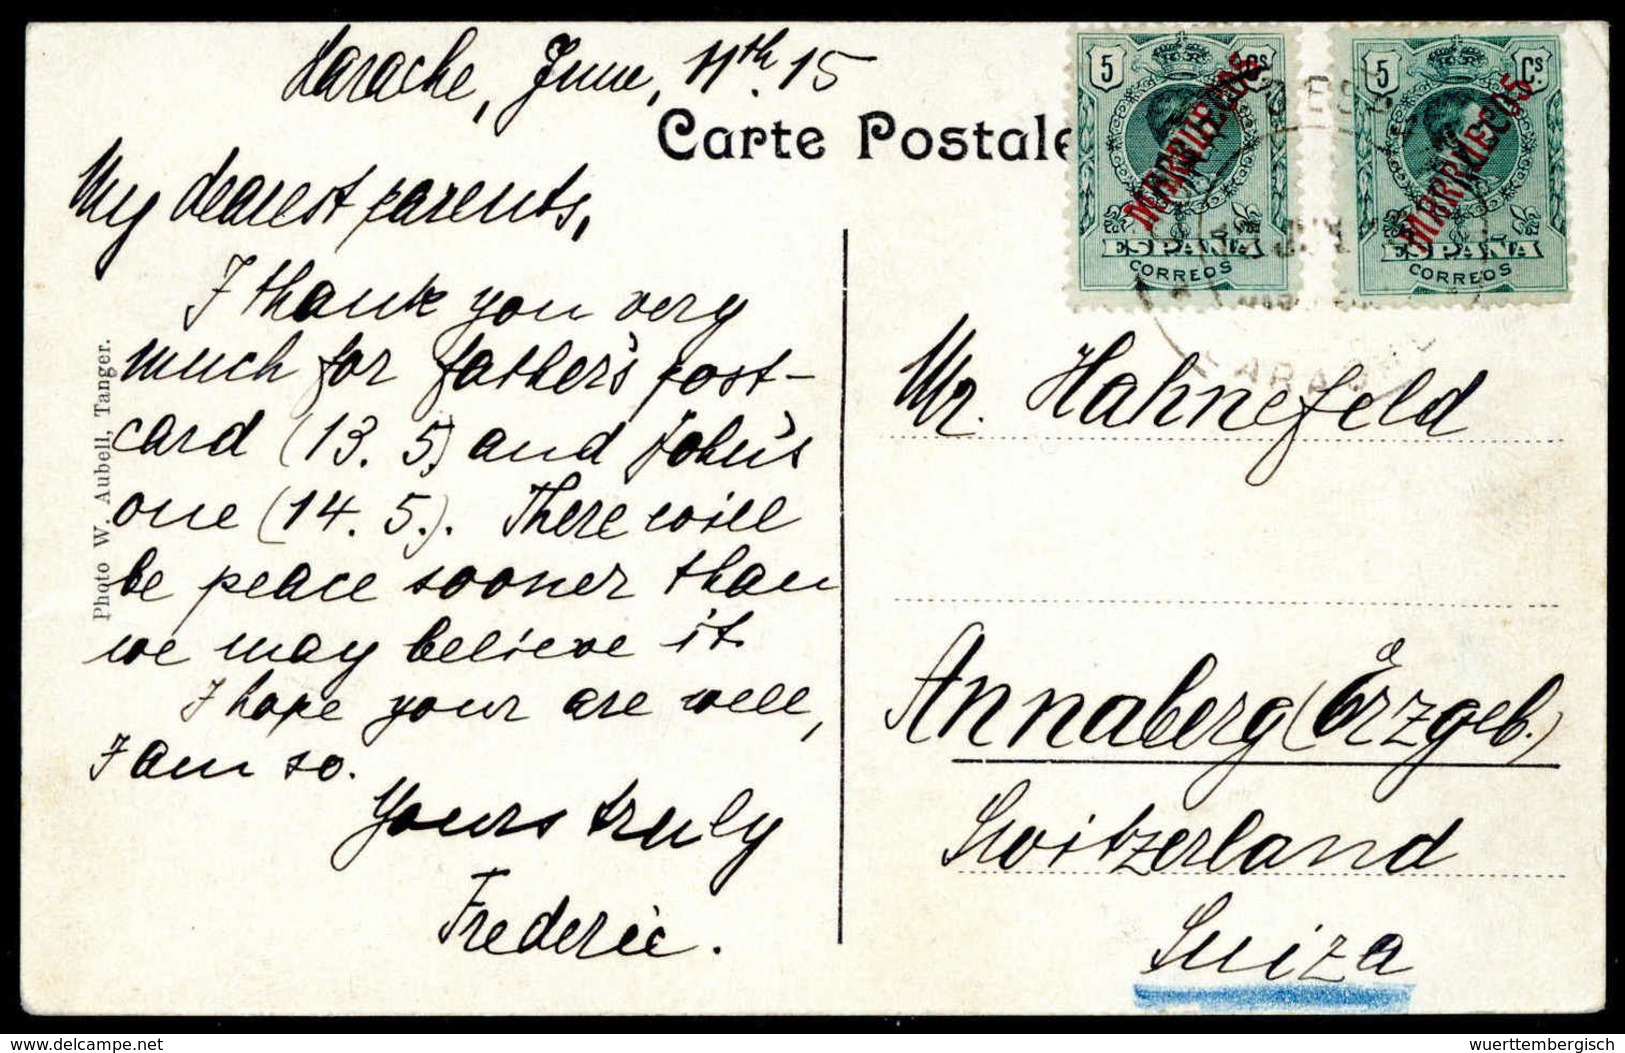 Harache, June, 11th. 15
Carte Postale
My dearest parents,
I thank you very
much for father's post-
card (13. 5.) and John's
one (14. 5.). There will
be peace sooner than
we may believe it.
I hope your are well,
I am so.
Yours truly
Frederic.
Photo W. Aubell, Tanger.
5 Cs
MARRUECOS
ESPAÑA
CORREOS
5 Cs.
MARRUECOS
ESPAÑA
CORREOS
LARACHE
Mr. Hahnefeld
Annaberg (Erzgeb.)
Switzerland
Suiza
delcampe.net
wuerttembergisch